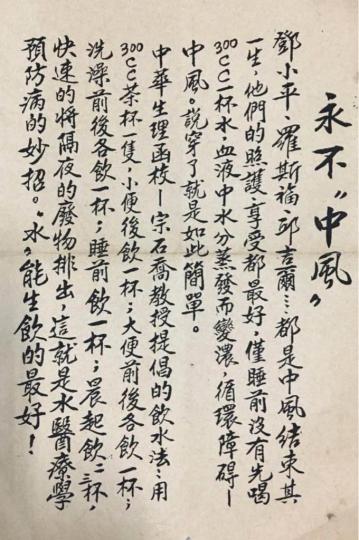 永不"中風"
鄧小平、羅斯福、邱吉爾…都是中風結束其
一生,他們的照護、享受都最好,僅睡前沒有先喝
300CC一杯水,血液中水分蒸發而變濃,循環障碍—
中風。說穿了就是如此簡單。
中華生理函校—宗石喬教授提倡的飲水法:用
300CC茶杯一隻,小便後飲一杯;大便前後各飲一杯;
洗澡前後各飲一杯;睡前飲一杯;晨起飲二三杯,
快速的將隔夜的廢物排出,這就是水醫療學
預防病的妙招。"水"能生飲的最好!